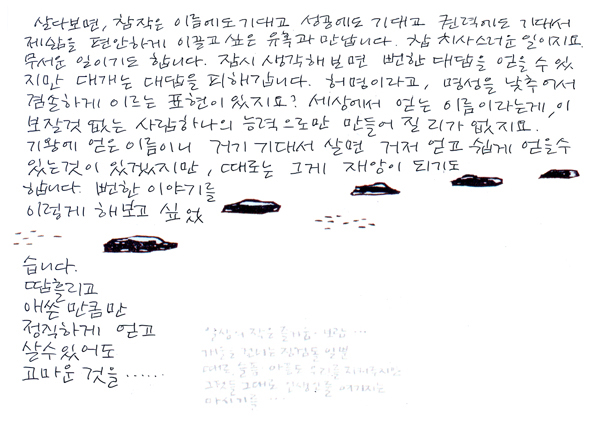 살다보면, 참 작은 이름에도 기대고 성공에도 기대고 권력에도 기대서
제 삶을 편안하게 이끌고 싶은 유혹과 만납니다. 참 치사스러운 일이지요.
무서운 일이기도 합니다. 잠시 생각해 보면 뻔한 대답을 얻을 수 있
지만 대개는 대답을 피해갑니다. 허명이라고, 명성을 낮추어서
겸손하게 이르는 표현이 있지요? 세상에서 얻는 이름이라는게, 이
보잘것 없는 사람 하나의 능력으로만 만들어 질 리가 없지요.
기왕에 얻은 이름이니 거기 기대서 살면 거저 얻고 쉽게 얻을 수
있는 것이 있겠지만, 때로는 그게 재앙이 되기도
합니다. 뻔한 이야기를
이렇게 해보고 싶었
습니다.
땀흘리고
애쓴 만큼만
정직하게 얻고
살 수 있어도
고마운 것을 ......